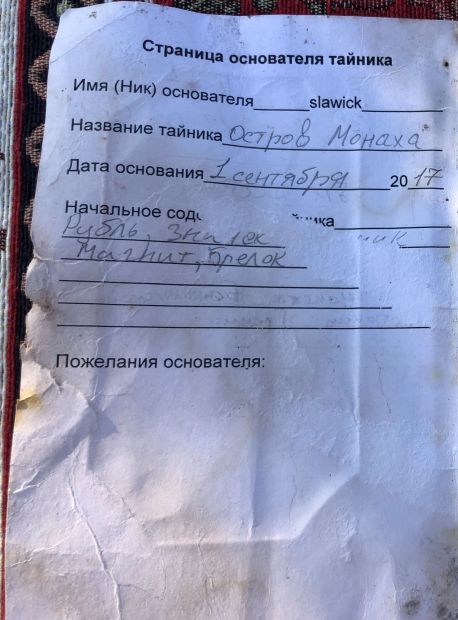 Страница основателя тайника
Имя (Ник) основателя______slawick________
Название тайника Остров Монаха
Дата основания 1 сентября 2017
Начальное
Рубль, значек
Магнит, брелок
Пожелания основателя: